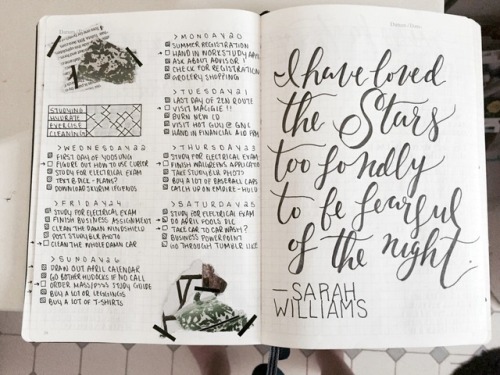 > MONDAY 20
SUMMER REGISTRATION
HAND IN WORKSTUDY APP
ASK ABOUT ADVISOR!
CHECK FOR REGISTRATION
GROCERY SHOPPING
STUDYING
HYDRATE
EXERCISE
CLEANING
> TUESDAY 21
LAST DAY OF ZEN ROUTE
VISIT MAGGIE!!
BURN NEW CD
VISIT HOT GUY @ GNC
HAND IN FINANCIAL AID
> WEDNESDAY 22
FIRST DAY OF
FIGURE OUT HOW TO USE CURTOR
STUDY FOR ELECTRICAL EXAM
TEXT
DOWNLOAD SKYRIM LEGENDS
> THURSDAY 23
STUDY FOR ELECTRICAL EXAM
FINISH WALLGREENS APPLICATION
TAKE STUDYBLR PHOTO
BUY A LOT OF BASEBALL CAPS
CATCH UP ON EMPIRE - HULU
> FRIDAY 24
STUDY FOR ELECTRICAL EXAM
FINISH BUSINESS ASSIGNMENT
CLEAN THE DAMN WINDSHIELD
POST STUDYBLR PHOTO
CLEAN THE WHOLE DAMN CAR
> SATURDAY 25
STUDY FOR ELECTRICAL EXAM
DO APRIL FOOLS DLC
TAKE CAR TO CAR WASH?
BUSINESS POWERPOINT
GO THROUGH TUMBLR LIKES
> SUNDAY 26
DRAW OUT APRIL CALENDAR
GO BOTHER HUDOCKS IF NO CALL
ORDER STUDY GUIDE
BUY A LOT OF LEGGINGS
BUY A LOT OF T-SHIRTS
I have loved
the Stars
too fondly
to be fearful
of the night
— SARAH
WILLIAMS